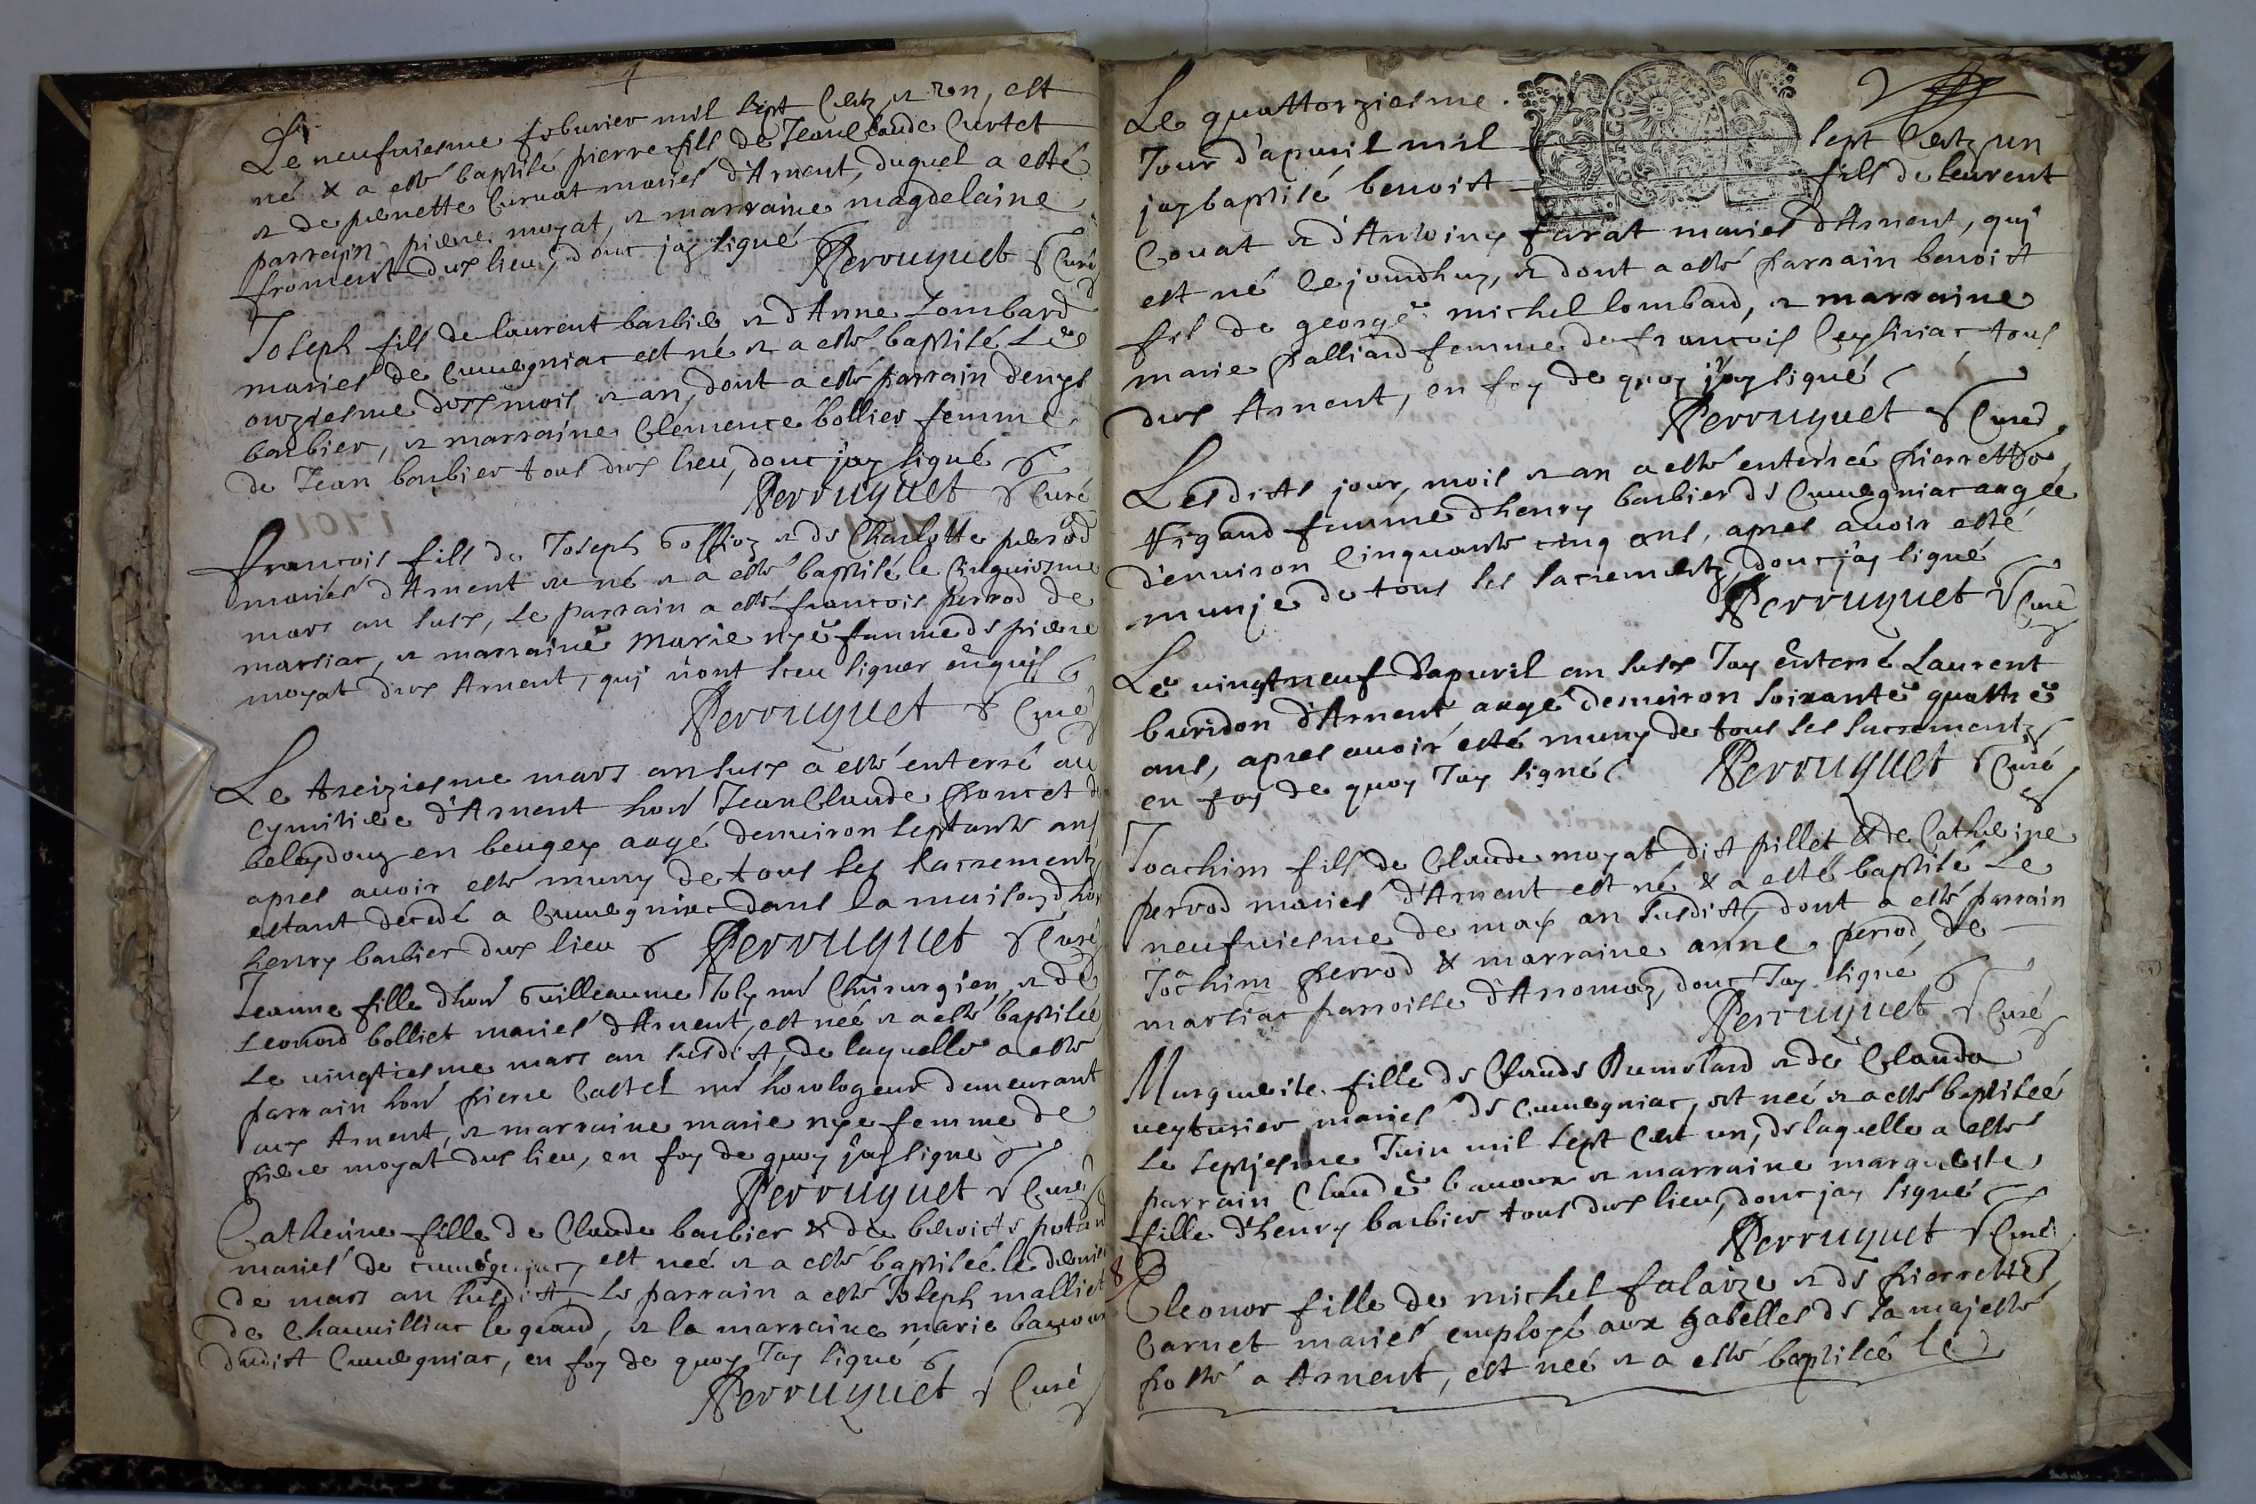 Le neufuiesme feburier mil sept Centz et un, est
né & a esté baptisé pierre fils de Jeanclaude Curtet
et de pernette Curvat mariés d'Arnent, duquel a esté
parrain pierre moyat, et marraine magdelaine
froment dud lieu, donc jay signé Perruquet Curé
Joseph fils de laurent barbier et d'Anne Lombard
mariés de Cuuergniac est né et a esté baptisé Le
onziesme desd mois et an, dont a esté parrain denys
barbier, et marraine Clemence bollier femme
de Jean barbier tous dud lieu, donc jay signé
Perruquet Curé
francois fils de Joseph Goffoz et de Charlotte perrod
mariés d'Arnent est né et a esté baptisé le Cinquiesme
mars an susd, Le parrain a esté francois perrod de
marsiac, et marraine marie nye femme de pierre
moyat dud Arnent, qui n'ont sceu signer enquis
Perruquet Curé
Le treiziesme mars an susd a esté enterré au
cymitiere d'Arnent hon Jean Claude poncet de
belaydouz en beugey aagé denuiron septante ans
apres auoir esté muny de tous les sacrementz
estant decedé a Cuuergniac dans la maison d'hon
henry barbier dud lieu Perruquet Curé
Jeanne fille d'hon Guilleaume Joly mr Chirurgien, et de
Leonord bolliet mariés d'Arnent, est neé et a esté baptiseé
Le uingtiesme mars an susdist, de laquelle a esté
parrain hon pierre Castel mr horologeur demeurant
aud Arnent, et marraine marie nye femme de
pierre moyat dud lieu, en foy de quoy jay signé
Perruquet Curé
Catherine fille de Claude barbier & de benoiste
mariés de cuuergniac, est neé et a esté baptiseé le dernier
de mars an susdist, Le parrain a esté Joseph malliet
de Chauuilliac le grand, et la marraine marie bauoux
dudist Cuuergniac, en foy de quoy Jay signé
Perruquet Curé
Le quattorziesme
Jour d'apuril mil sept Centz un
jay baptisé benoist fils de laurent
Couat et d'Antoiny farat mariés d'Arnent, qui
est né cejourdhuy, et dont a esté parrain benoist
fils de george michel lombard, et marraine
marie palliard femme de francois Ceysiriac tous
dud Arnent, en foy de quoy jay signé
Perruquet Curé
Lesdists jour, mois et an a esté enterreé pierrette
Vigaud femme d'henry barbier de Cuuergniac aageé
d'enuiron Cinquante cinq ans, apres auoir esté
munje de tous les sacrementz, donc jay signé
Perruquet Curé
Le uingtneuf d'apuril an susd Jay enterré Laurent
buridon d'Arnent aagé denuiron soixante quattre
ans, apres auoir esté muny de tous les sacrementz
en foy de quoy Jay signé Perruquet Curé
Joachim fils de Claude moyat dist pillet & de Catherine
perrod mariés d'Arnent est né & a esté baptisé Le
neufuiesme de may an susdist, dont a esté parrain
Joachim perrod & marraine anne perrod, de
marsiac parroisse d'Aromaz, donc Jay signé
Perruquet Curé
Marguerite fille de Claude Dumolard et de Clauda
ueyturier mariés de Cuuergniac, est neé et a esté baptiseé
Le septjesme Juin mil sept Cent un, de laquelle a esté
parrain Claude bauoux et marraine marguerite
fille d'henry barbier tous dud lieu, donc jay signé
Perruquet Curé
8
Eleonor fille de michel falaize et de pierrette
Carnet mariés, employé aux gabelles de sa majesté
posté a Arnent, est neé et a esté baptiseé le